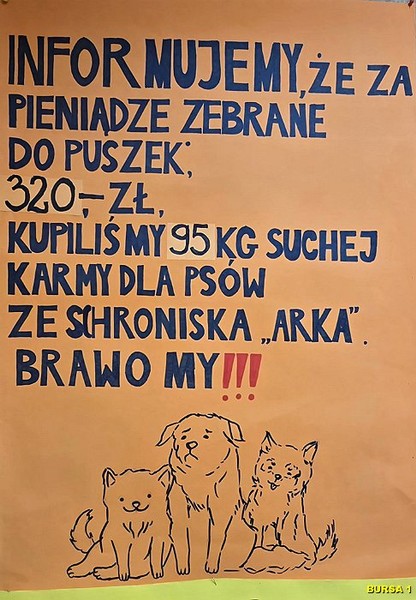 INFORMUJEMY, ŻE ZA
PIENIĄDZE ZEBRANE
DO PUSZEK;
320,- ZŁ,
KUPILIŚMY 95 KG SUCHEJ
KARMY DLA PSÓW
ZE SCHRONISKA „ARKA”.
BRAWO MY!!!
BURSA 1